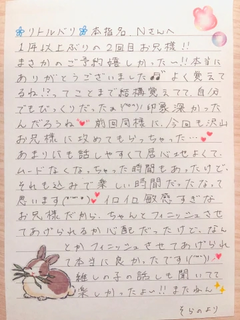 リトルベリ 本指名、Nさんへ
1年以上ぶりの2回目お兄様!!
まさかのご予約嬉しかったー!!本当に
ありがとうございました よく覚えて
るね!?ってことまで結構覚えてて、自分
でもびっくりだったょ 印象深かった
んだろうね 前回同様に、今回も沢山
お兄様に攻めてもらっちゃった…
あまりにも話しやすくて居心地よくて、
ムードなくなっちゃった時間もあったけど
それも込みで楽しい時間だったなって
思います(*^^*) イロイロ敏感すぎな
お兄様だから、ちゃんとフィニッシュさせ
てあげられるか心配だったけど、なん
とかフィニッシュさせてあげられ
て本当に良かったです!
推しの子の話しも聞いてて
楽しかったよー!!またねん
そらのより